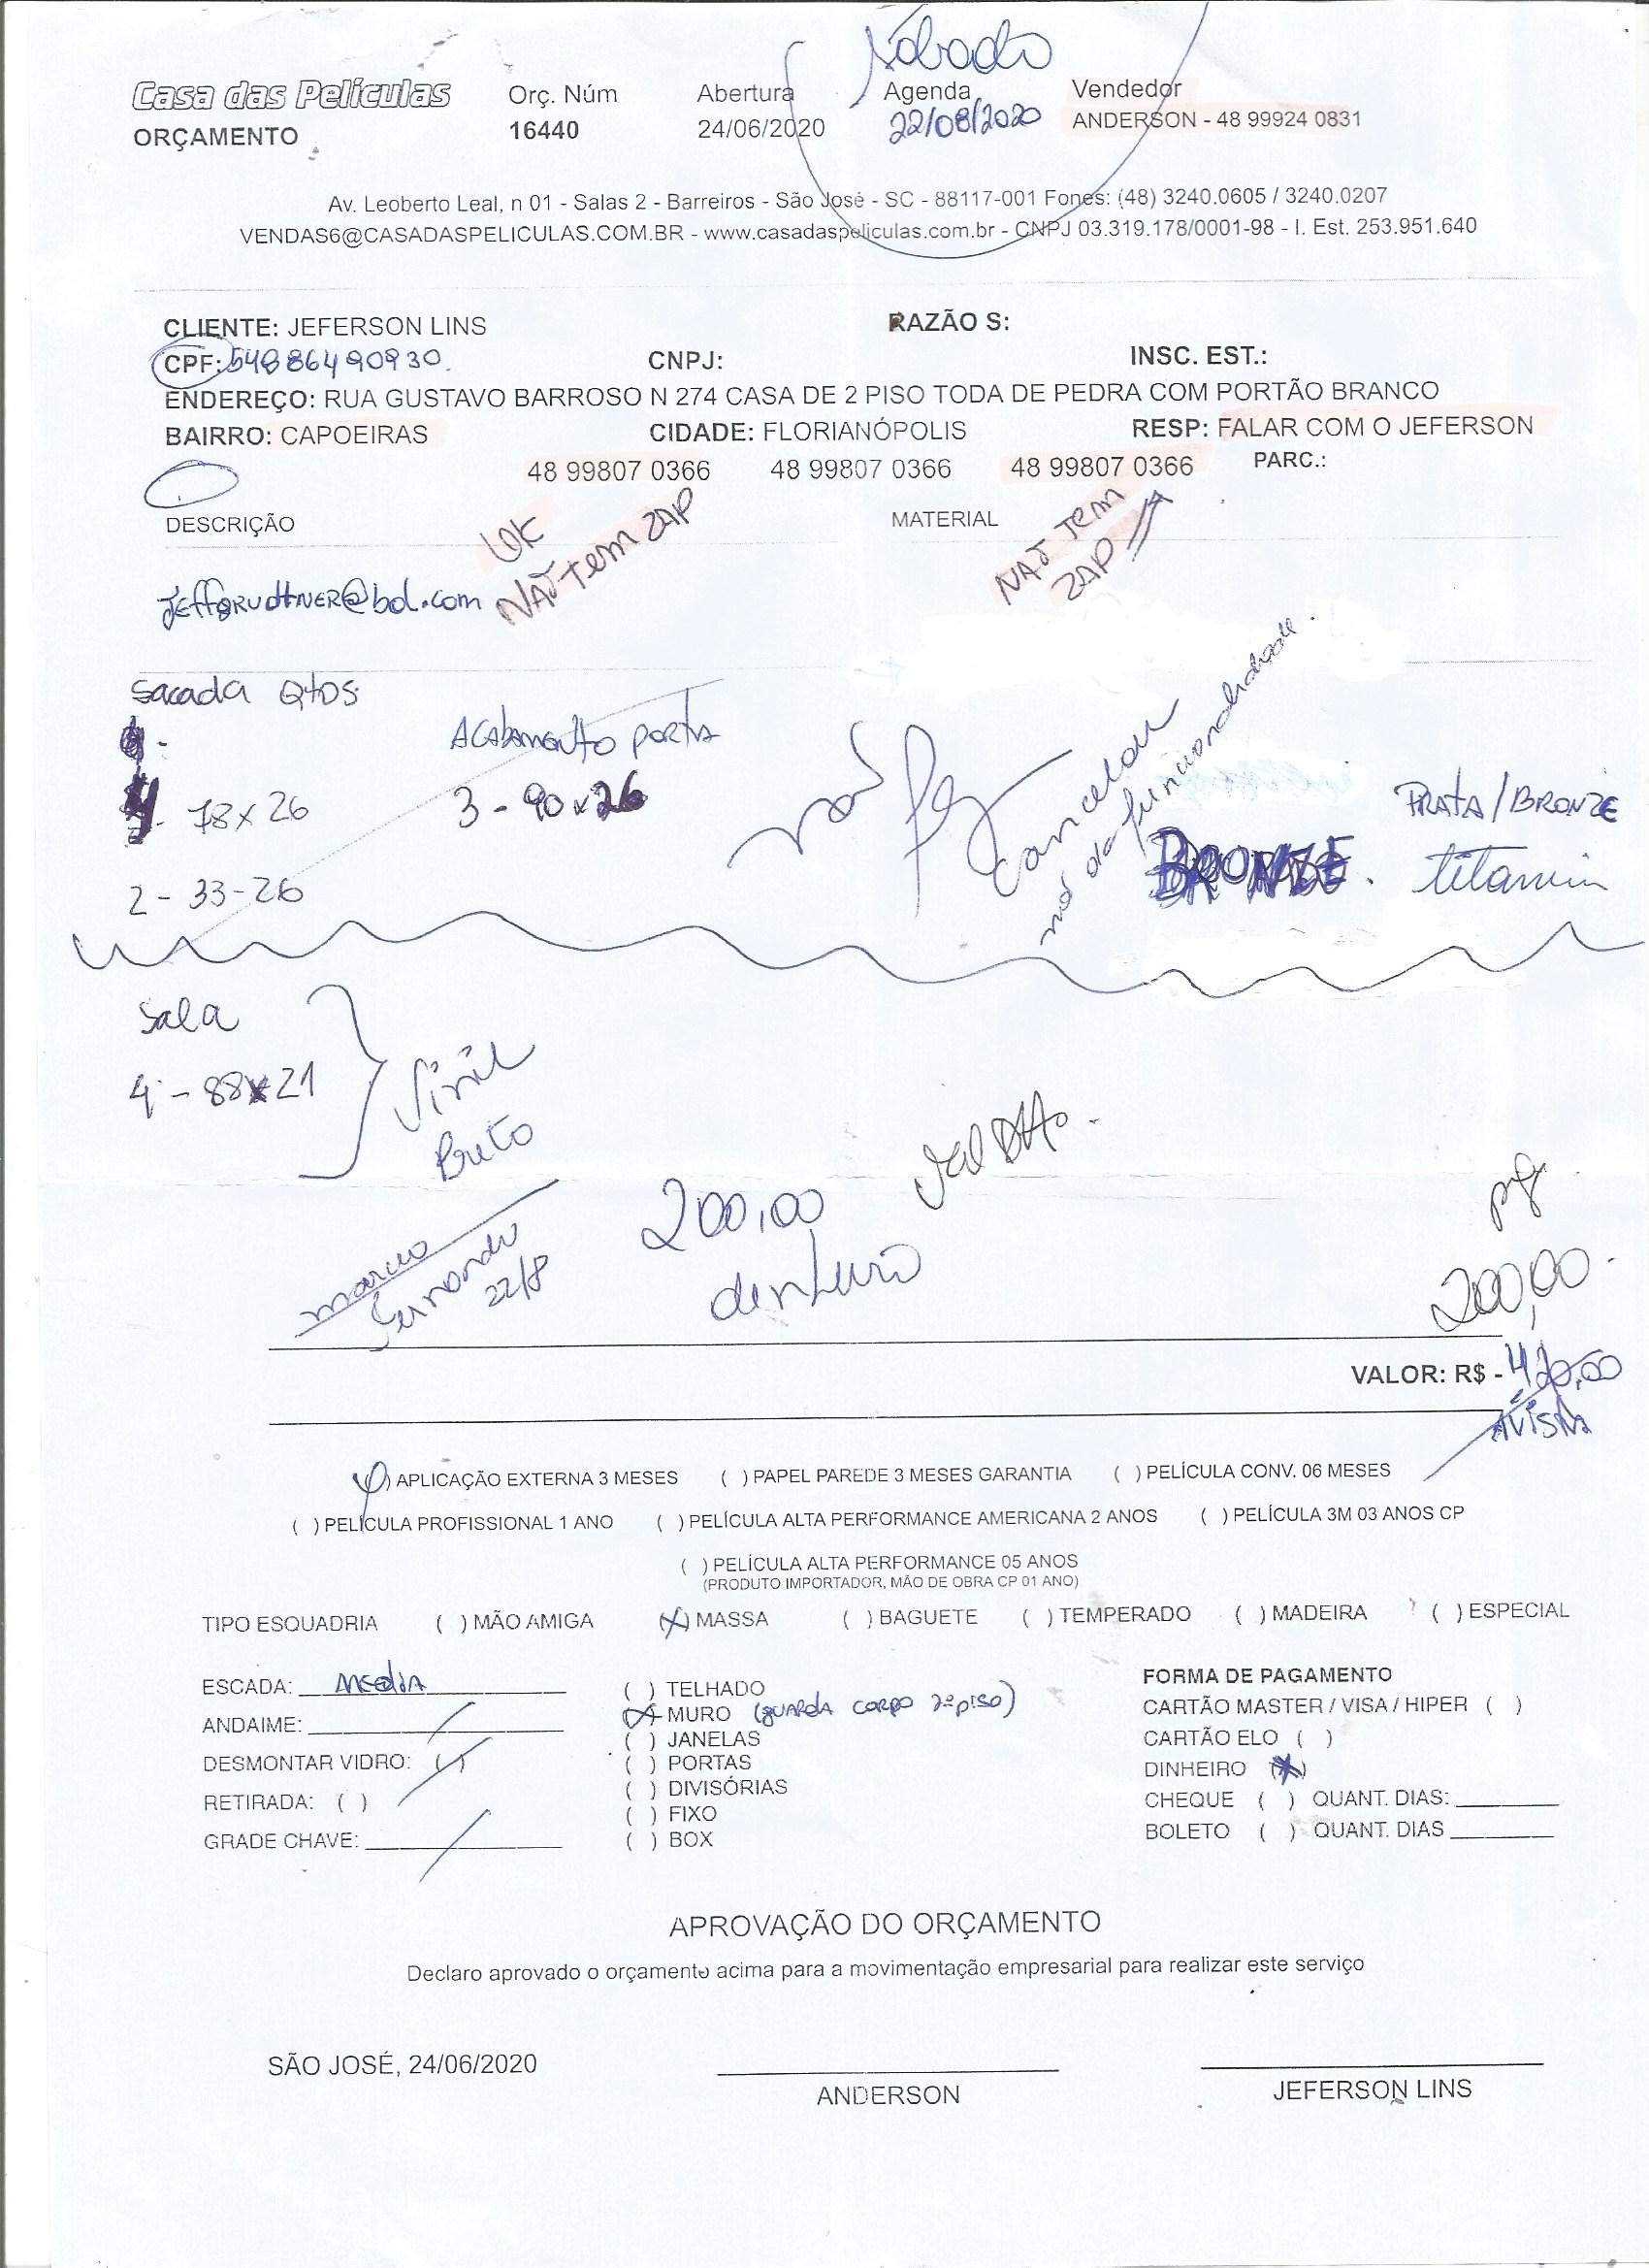 Sábado
Casa das Películas
ORÇAMENTO
Orç. Núm
16440
Abertura
24/06/2020
Agenda
22/08/2020
Vendedor
ANDERSON - 48 99924 0831
Av. Leoberto Leal, n 01 - Salas 2 - Barreiros - São José - SC - 88117-001 Fones: (48) 3240.0605 / 3240.0207
VENDAS6@CASADASPELICULAS.COM.BR - www.casadaspeliculas.com.br - CNPJ 03.319.178/0001-98 - I. Est. 253.951.640
CLIENTE: JEFERSON LINS RAZÃO S:
CPF: 54886490930. CNPJ: INSC. EST.:
ENDEREÇO: RUA GUSTAVO BARROSO N 274 CASA DE 2 PISO TODA DE PEDRA COM PORTÃO BRANCO
BAIRRO: CAPOEIRAS CIDADE: FLORIANÓPOLIS RESP: FALAR COM O JEFERSON
48 99807 0366 48 99807 0366 48 99807 0366 PARC.:
DESCRIÇÃO MATERIAL
OK
NÃO TEM ZAP
NÃO TEM
ZAP
@bol.com
Sacada Qtos
Acabamento porta
78x26
3 - 90x26
2 - 33-26
não fez
cancelou
funcionalidade.
BRONZE.
PRATA/BRONZE
Sala
4 - 88x21
Vinil
Preto
200,00
dinheiro
marcio
Fernando
22/8
pg
200,00
VALOR: R$ - 420,00
ÁVISTA
( ) APLICAÇÃO EXTERNA 3 MESES ( ) PAPEL PAREDE 3 MESES GARANTIA ( ) PELÍCULA CONV. 06 MESES
( ) PELÍCULA PROFISSIONAL 1 ANO ( ) PELÍCULA ALTA PERFORMANCE AMERICANA 2 ANOS ( ) PELÍCULA 3M 03 ANOS CP
( ) PELÍCULA ALTA PERFORMANCE 05 ANOS
(PRODUTO IMPORTADOR, MÃO DE OBRA CP 01 ANO)
TIPO ESQUADRIA ( ) MÃO AMIGA (X) MASSA ( ) BAGUETE ( ) TEMPERADO ( ) MADEIRA ( ) ESPECIAL
ESCADA: Media
ANDAIME:
DESMONTAR VIDRO: ( )
RETIRADA: ( )
GRADE CHAVE:
( ) TELHADO
(X) MURO (guarda corpo 2º piso)
( ) JANELAS
( ) PORTAS
( ) DIVISÓRIAS
( ) FIXO
( ) BOX
FORMA DE PAGAMENTO
CARTÃO MASTER / VISA / HIPER ( )
CARTÃO ELO ( )
DINHEIRO (X)
CHEQUE ( ) QUANT. DIAS:
BOLETO ( ) QUANT. DIAS
APROVAÇÃO DO ORÇAMENTO
Declaro aprovado o orçamento acima para a movimentação empresarial para realizar este serviço
SÃO JOSÉ, 24/06/2020
ANDERSON
JEFERSON LINS